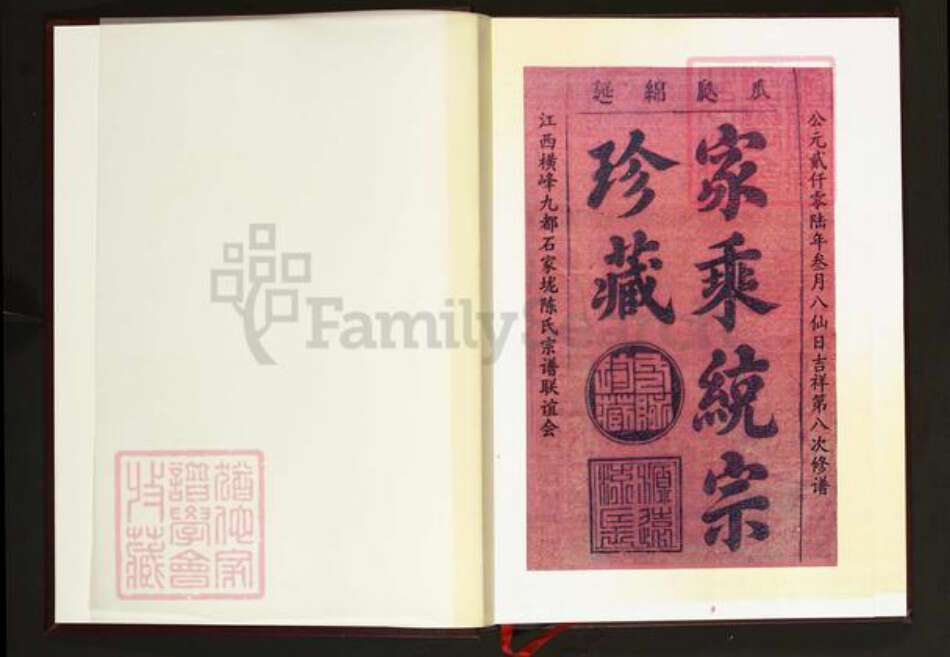 瓜瓞綿延
公元贰仟零陆年叁月八仙日吉祥第八次修谱
家乘統宗
珍藏
源遠流長
江西横峰九都石家垅陈氏宗谱联谊会
譜學會
收藏
FamilySearch